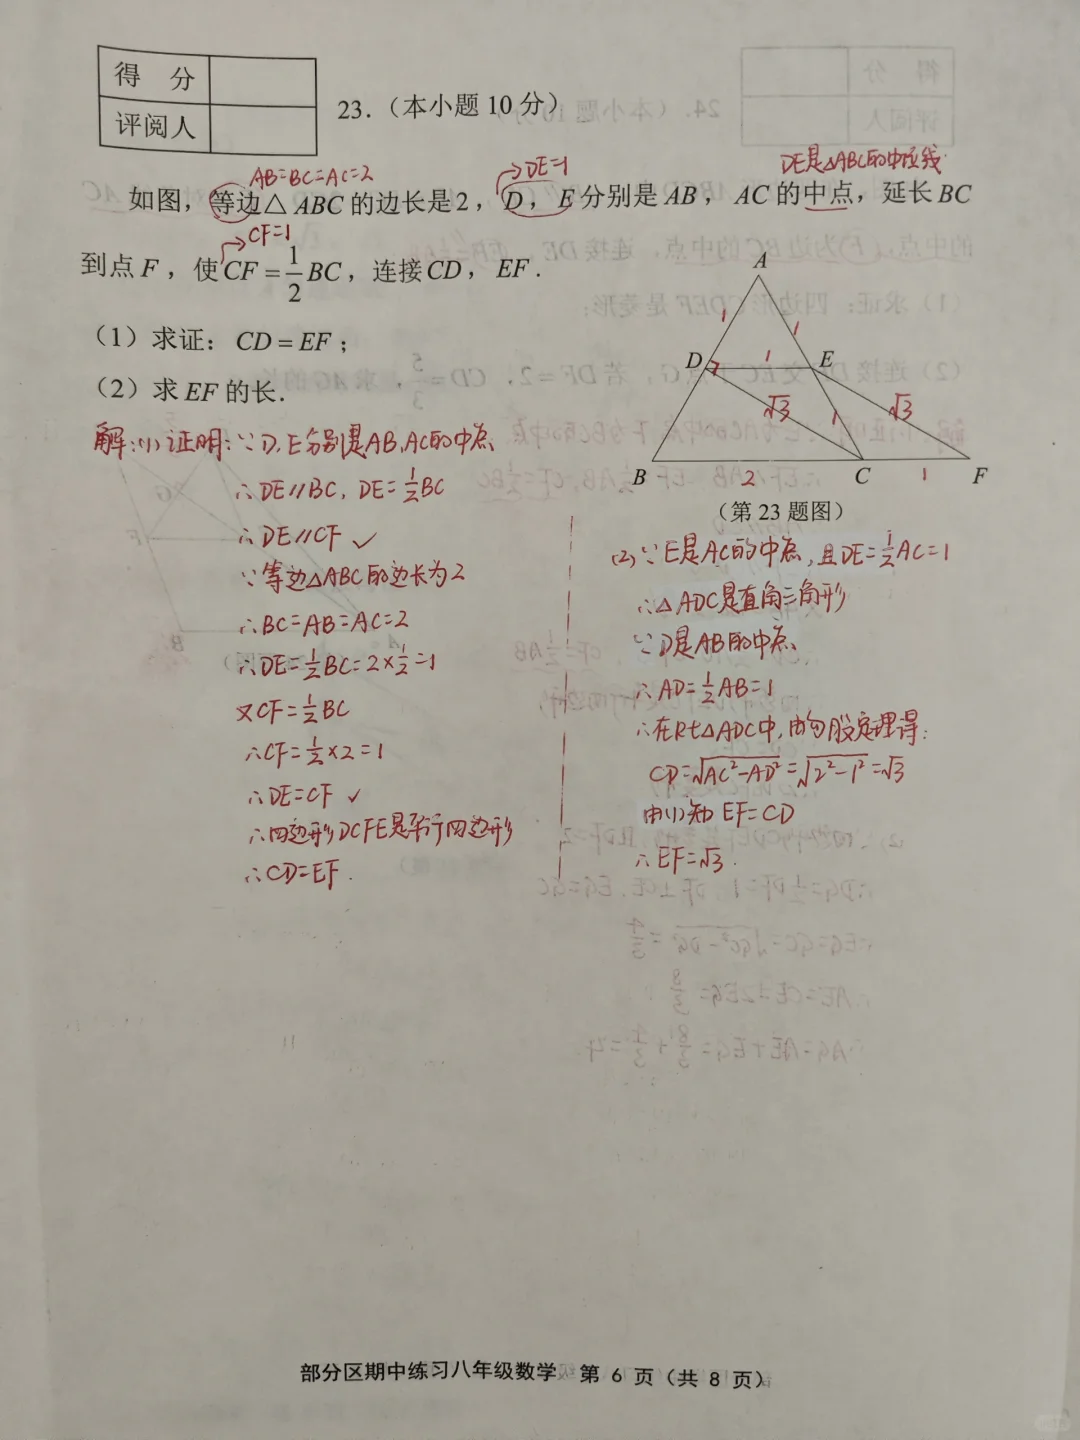 得 分
评阅人
23.（本小题10分）
AB=BC=AC=2
DE=1
DE是△ABC的中位线
如图，等边△ABC的边长是2，D，E分别是AB，AC的中点，延长BC
CF=1
到点F，使CF=1/2BC，连接CD，EF.
（1）求证：CD=EF；
（2）求EF的长.
A
1
1
D
1
E
√3
√3
1
B
2
C
1
F
（第23题图）
解:(1)证明:∵D,E分别是AB,AC的中点
∴DE∥BC, DE=1/2BC
∴DE∥CF ✓
∵等边△ABC的边长为2
∴BC=AB=AC=2
∴DE=1/2BC=2×1/2=1
又CF=1/2BC
∴CF=1/2×2=1
∴DE=CF ✓
∴四边形DCFE是平行四边形
∴CD=EF.
(2)∵E是AC的中点,且DE=1/2AC=1
∴△ADC是直角三角形
∵D是AB的中点
∴AD=1/2AB=1
∴在Rt△ADC中,由勾股定理得:
CD=√AC²-AD²=√2²-1²=√3
由(1)知 EF=CD
∴EF=√3.
部分区期中练习八年级数学 第 6 页（共 8 页）